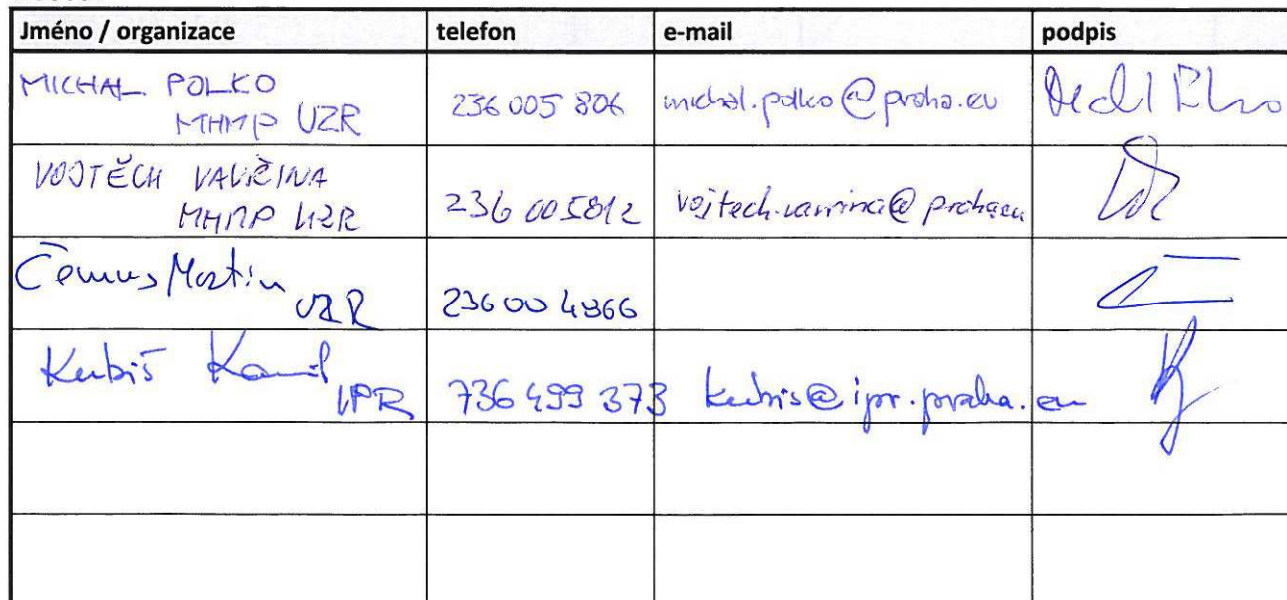 Jméno / organizace telefon e-mail podpis
MICHAL POLKO
MHMP UZR 236 005 806 michal.polko@praha.eu
VOJTĚCH VAVŘINA
MHMP UZR 236 005812 vojtech.vavrina@praha.eu
Čemus Martin
UZR 236 00 4966
Kubiš Kamil
IPR 736 499 373 kubis@ipr.praha.eu